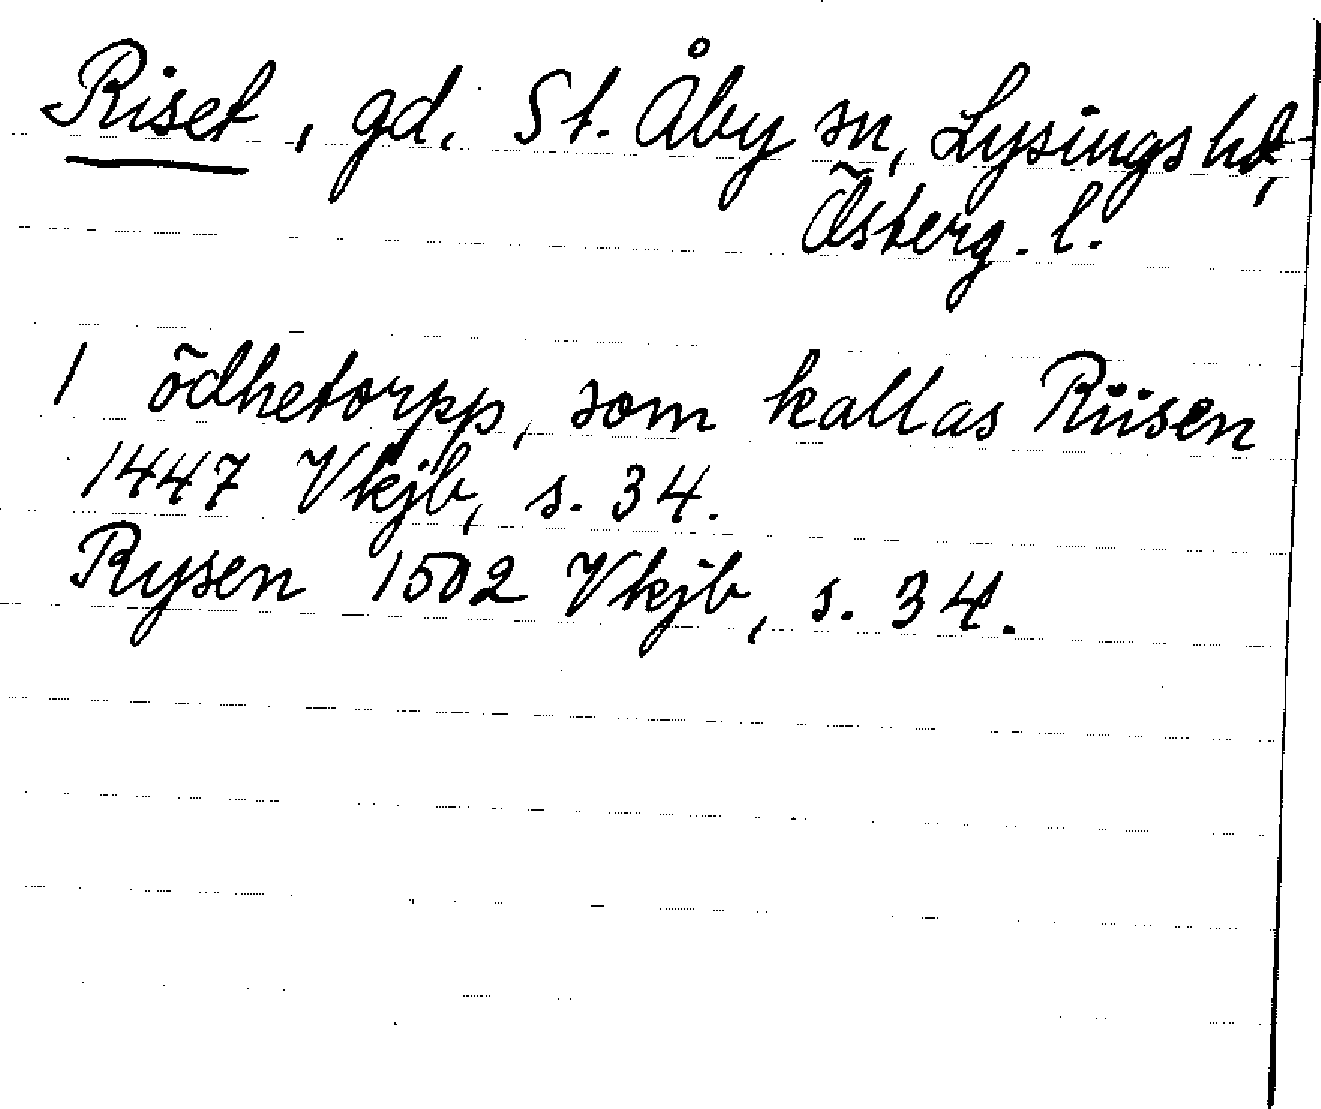 Riset, gd. St. Åby sn, Lysings hd,
Österg. l.
1 ödhetorpp, som kallas Riisen
1447 Vkjb, s. 34.
Rysen 1502 Vkjb, s. 34.